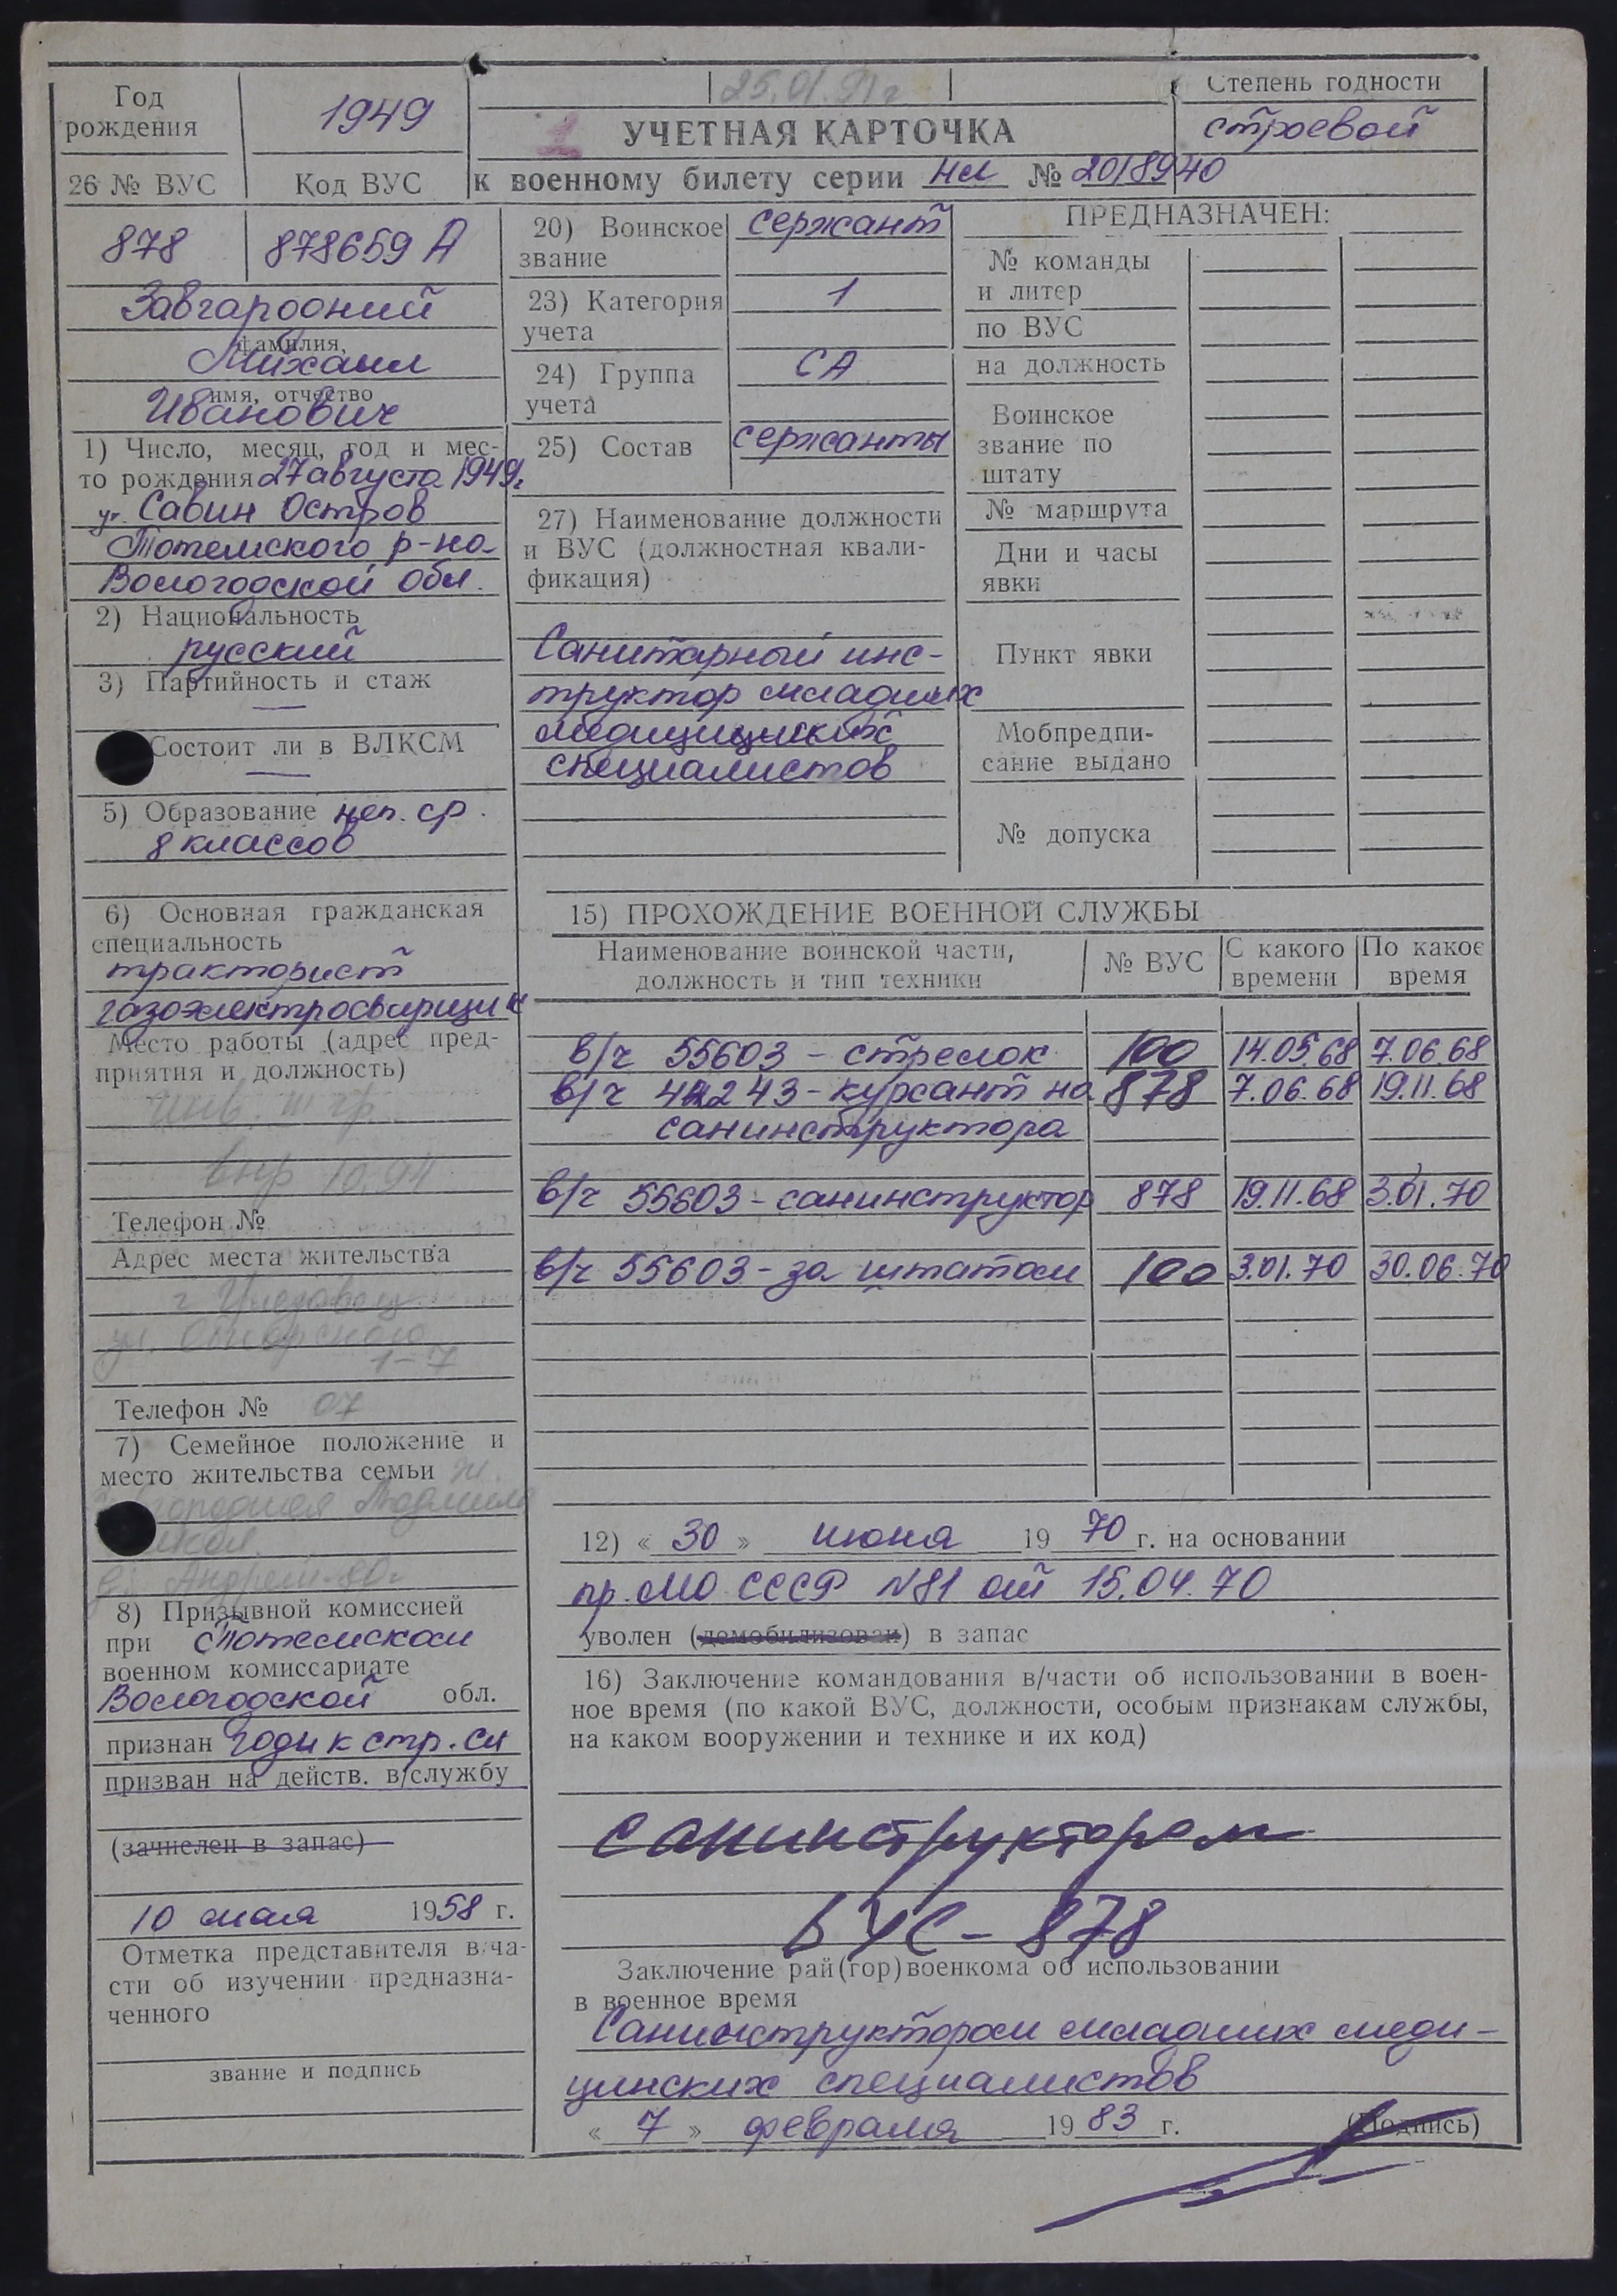 25.01.91 г
Год рождения
1949
УЧЕТНАЯ КАРТОЧКА
к военному билету серии НЛ № 2018940
Степень годности
строевой
26 № ВУС
Код ВУС
878
878659 А
Завгародний
фамилия,
Михаил
имя, отчество
Иванович
1) Число, месяц, год и мес-
то рождения 27 августа 1949г
Савин Остров
Тотемского р-на
Вологодской обл.
2) Национальность
русский
3) Партийность и стаж
—
Состоит ли в ВЛКСМ
—
5) Образование неп. ср.
8 классов
6) Основная гражданская
специальность
тракторист
газоэлектросварщик
Место работы (адрес пред-
приятия и должность)
инв. III гр.
10.94
Телефон №
Адрес места жительства
г
ул.
1-7
Телефон № 07
7) Семейное положение и
место жительства семьи ж.
Людмила
Андрей-80г
8) Призывной комиссией
при Тотемском
военном комиссариате
Вологодской обл.
признан годн к стр. сл
призван на действ. в/службу
(зачислен в запас)
10 мая 1958 г.
Отметка представителя в/ча-
сти об изучении предназна-
ченного
звание и подпись
20) Воинское
звание
сержант
23) Категория
учета
1
24) Группа
учета
СА
25) Состав
сержанты
27) Наименование должности
и ВУС (должностная квали-
фикация)
Санитарный инс-
труктор младших
медицицинских
специалистов
ПРЕДНАЗНАЧЕН:
№ команды
и литер
по ВУС
на должность
Воинское
звание по
штату
№ маршрута
Дни и часы
явки
Пункт явки
Мобпредпи-
сание выдано
№ допуска
15) ПРОХОЖДЕНИЕ ВОЕННОЙ СЛУЖБЫ
Наименование воинской части,
должность и тип техники
№ ВУС
С какого
времени
По какое
время
в/ч 55603 - стрелок 100 14.05.68 7.06.68
в/ч 44243 - курсант на 878 7.06.68 19.11.68
санинструктора
в/ч 55603 - санинструктор 878 19.11.68 3.01.70
в/ч 55603 - за штатом 100 3.01.70 30.06.70
12) « 30 » июня 19 70 г. на основании
пр. МО СССР N81 от 15.04.70
уволен (демобилизован) в запас
16) Заключение командования в/части об использовании в воен-
ное время (по какой ВУС, должности, особым признакам службы,
на каком вооружении и технике и их код)
санинструктором
ВУС - 878
Заключение рай(гор)военкома об использовании
в военное время
Санинструктором младших меди-
цинских специалистов
« 7 » февраля 19 83 г.
(Подпись)